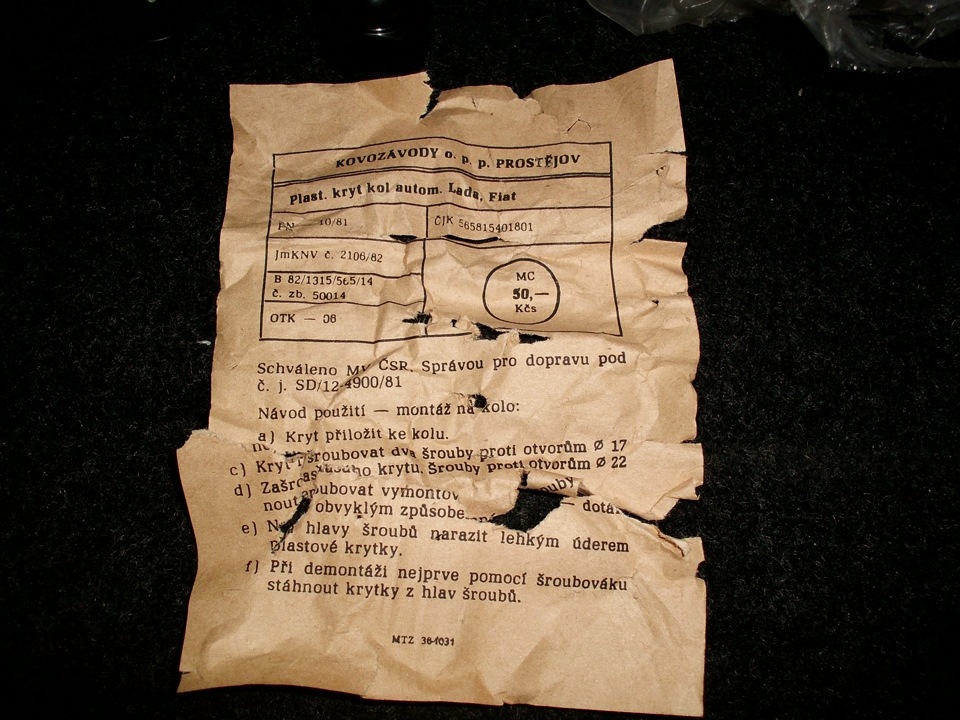 KOVOZÁVODY o. p. p. PROSTĚJOV
Plast. kryt kol autom. Lada, Fiat
PN 10/81
ČJK 565815401801
JmKNV č. 2106/82
B 82/1315/565/14
č. zb. 50014
OTK — 06
MC
50,—
Kčs
Schváleno MV ČSR, Správou pro dopravu pod
č. j. SD/12-4900/81
Návod použití — montáž na kolo:
a) Kryt přiložit ke kolu.
šroubovat dva šrouby proti otvorům Ø 17
c) Kryt
krytu. Šrouby proti otvorům Ø 22
d)
vymontov
— dotáh
nout obvyklým způsobem
e) Na hlavy šroubů narazit lehkým úderem
plastové krytky.
f) Při demontáži nejprve pomocí šroubováku
stáhnout krytky z hlav šroubů.
MTZ 36-1031